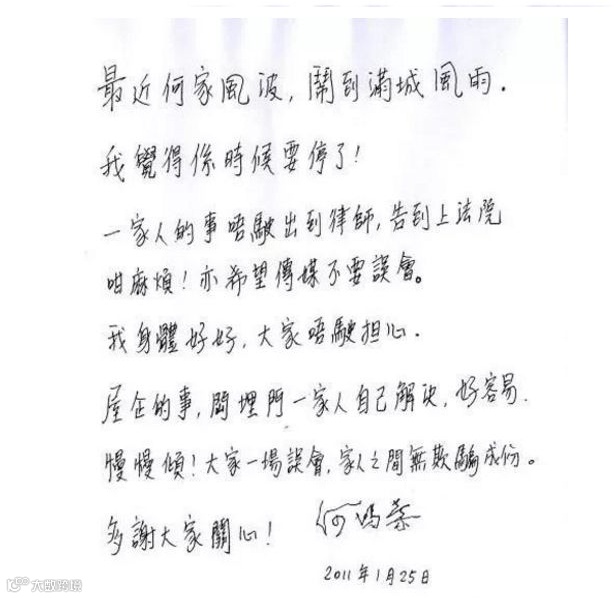 最近何家風波,鬧到滿城風雨.
我覺得係時候要停了!
一家人的事唔駛出到律師,告到上法院
咁麻煩!亦希望傳媒不要誤會。
我身體好好,大家唔駛担心.
屋企的事,關埋門一家人自己解決,好容易.
慢慢傾!大家一場誤會,家人之間無欺騙成份。
多謝大家關心!
何鸿燊
2011年1月25日
大数跨境